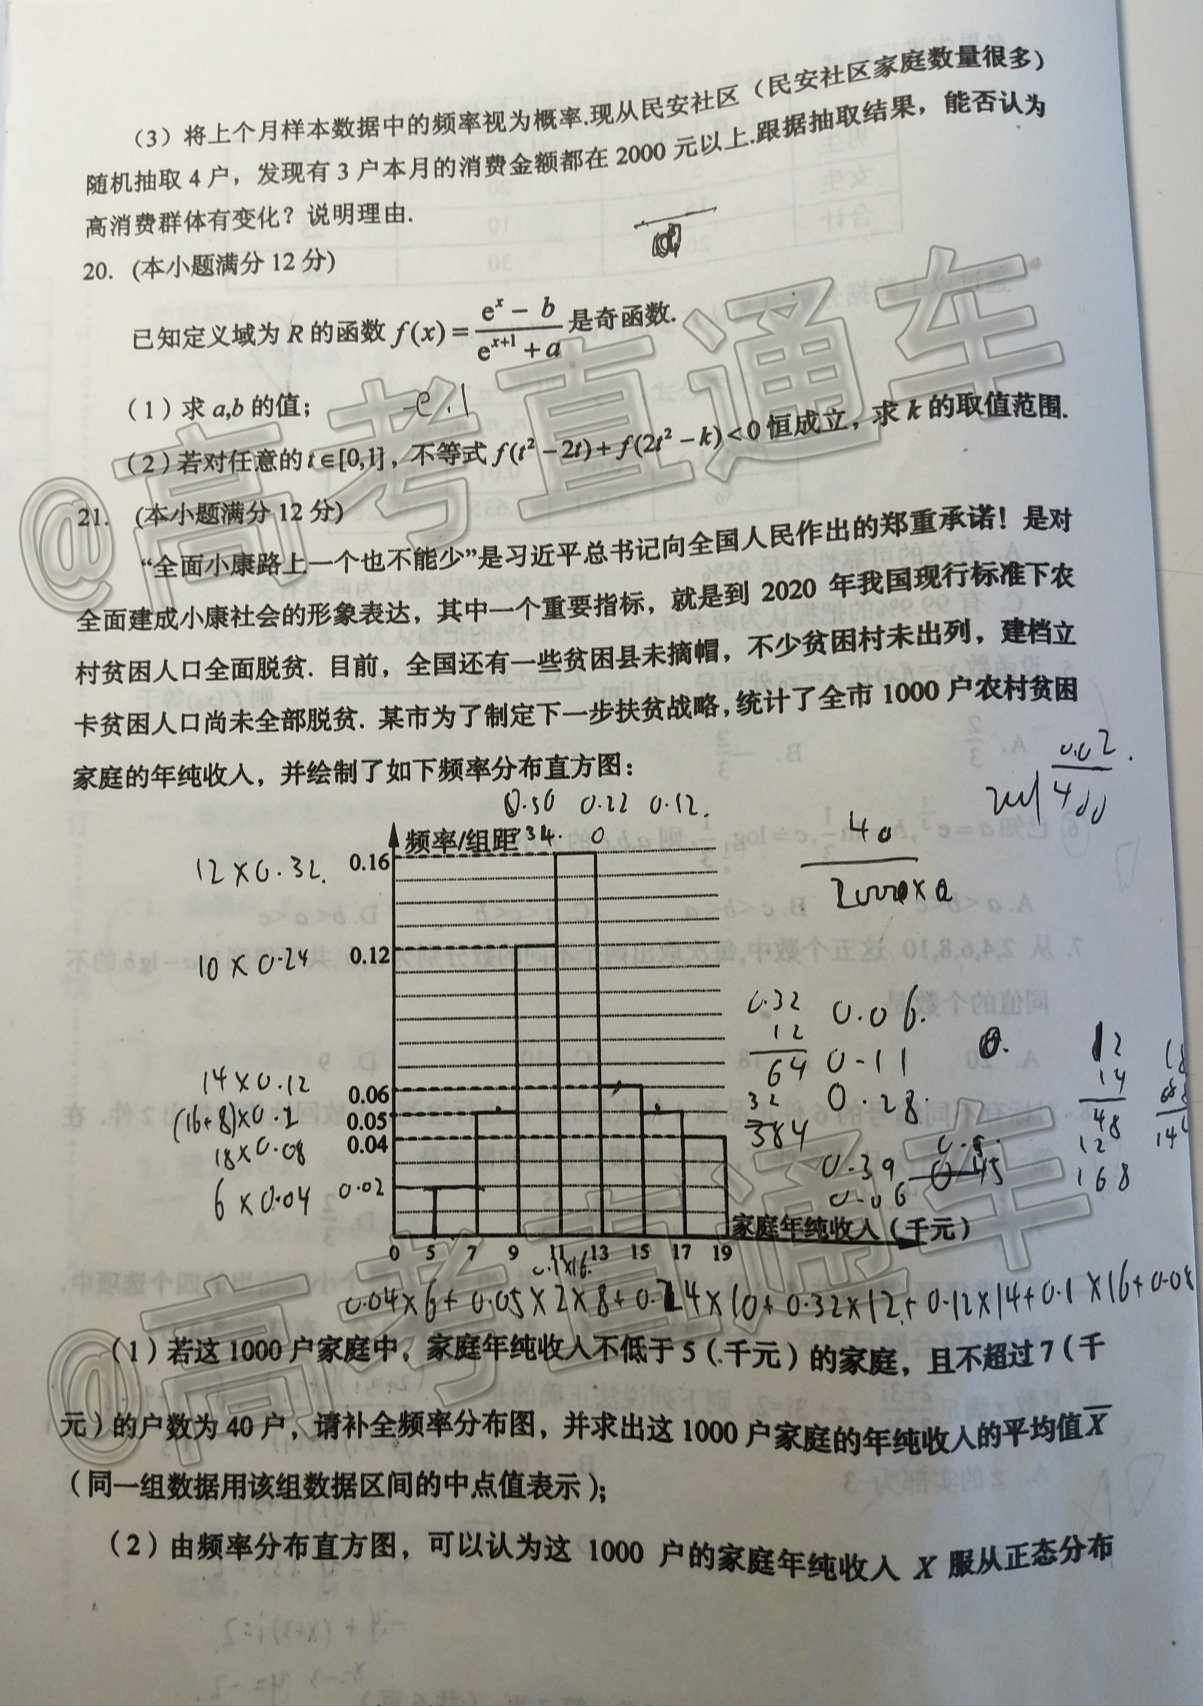 （3）将上个月样本数据中的频率视为概率.现从民安社区（民安社区家庭数量很多）
随机抽取 4 户，发现有 3 户本月的消费金额都在 2000 元以上.跟据抽取结果，能否认为
高消费群体有变化？说明理由.
20.（本小题满分 12 分）
已知定义域为 R 的函数 f(x) = (eˣ − b)/(eˣ⁺¹ + a) 是奇函数.
（1）求 a,b 的值；
-e.1
（2）若对任意的 t∈[0,1]，不等式 f(t² − 2t) + f(2t² − k) < 0 恒成立，求 k 的取值范围.
21.（本小题满分 12 分）
“全面小康路上一个也不能少”是习近平总书记向全国人民作出的郑重承诺！是对
全面建成小康社会的形象表达，其中一个重要指标，就是到 2020 年我国现行标准下农
村贫困人口全面脱贫. 目前，全国还有一些贫困县未摘帽，不少贫困村未出列，建档立
卡贫困人口尚未全部脱贫. 某市为了制定下一步扶贫战略，统计了全市 1000 户农村贫困
家庭的年纯收入，并绘制了如下频率分布直方图：
0.02
400
0.50 0.22 0.12.
频率/组距
34.
0
40
12×0.32.
0.16
10×0.24
0.12
0.32
12
64
32
384
0.06.
0-11
0.28.
0.39
0.06
0.45
12
14
48
12
168
14×0.12
(16+8)×0.1
18×0.08
6×0.04
0.06
0.05
0.04
0.02
家庭年纯收入（千元）
0 5 7 9 11 13 15 17 19
0.1×16.
0.04×6+0.05×2×8+0.24×10+0.32×12+0.12×14+0.1×16+0.08
（1）若这 1000 户家庭中，家庭年纯收入不低于 5（千元）的家庭，且不超过 7（千
元）的户数为 40 户，请补全频率分布图，并求出这 1000 户家庭的年纯收入的平均值 X̄
（同一组数据用该组数据区间的中点值表示）；
（2）由频率分布直方图，可以认为这 1000 户的家庭年纯收入 X 服从正态分布
@高考直通车
@高考直通车